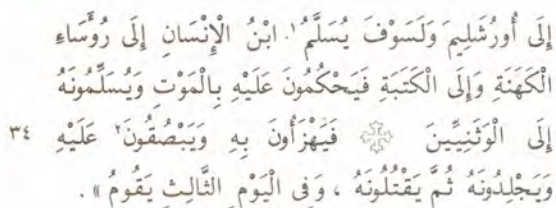 إِلَى أُورُشَلِيمَ وَلَسَوْفَ يُسَلَّمُ ١. ابْنُ الْإِنْسَانِ إِلَى رُؤَسَاءِ
الْكَهَنَةِ وَإِلَى الْكَتَبَةِ فَيَحْكُمُونَ عَلَيْهِ بِالْمَوْتِ وَيُسَلِّمُونَهُ
إِلَى الْوَثَنِيِّينَ فَيَهْزَأُونَ بِهِ وَيَبْصُقُونَ ٢ عَلَيْهِ ٣٤
وَيَجْلِدُونَهُ ثُمَّ يَقْتُلُونَهُ ، وَفِى الْيَوْمِ الثَّالِثِ يَقُومُ » .